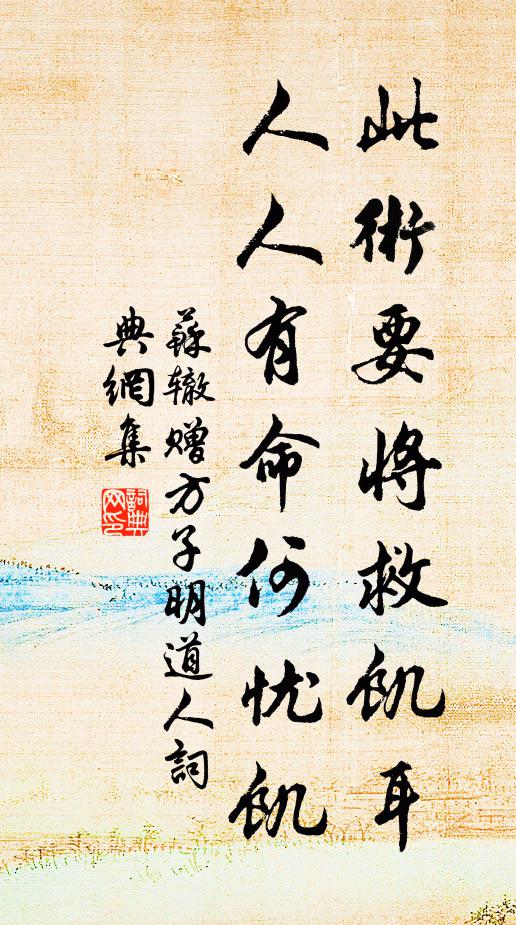 此術要將救飢耳
人人有命何忧飢
蘇辙赠方子明道人詞
典網集
詞典
网印